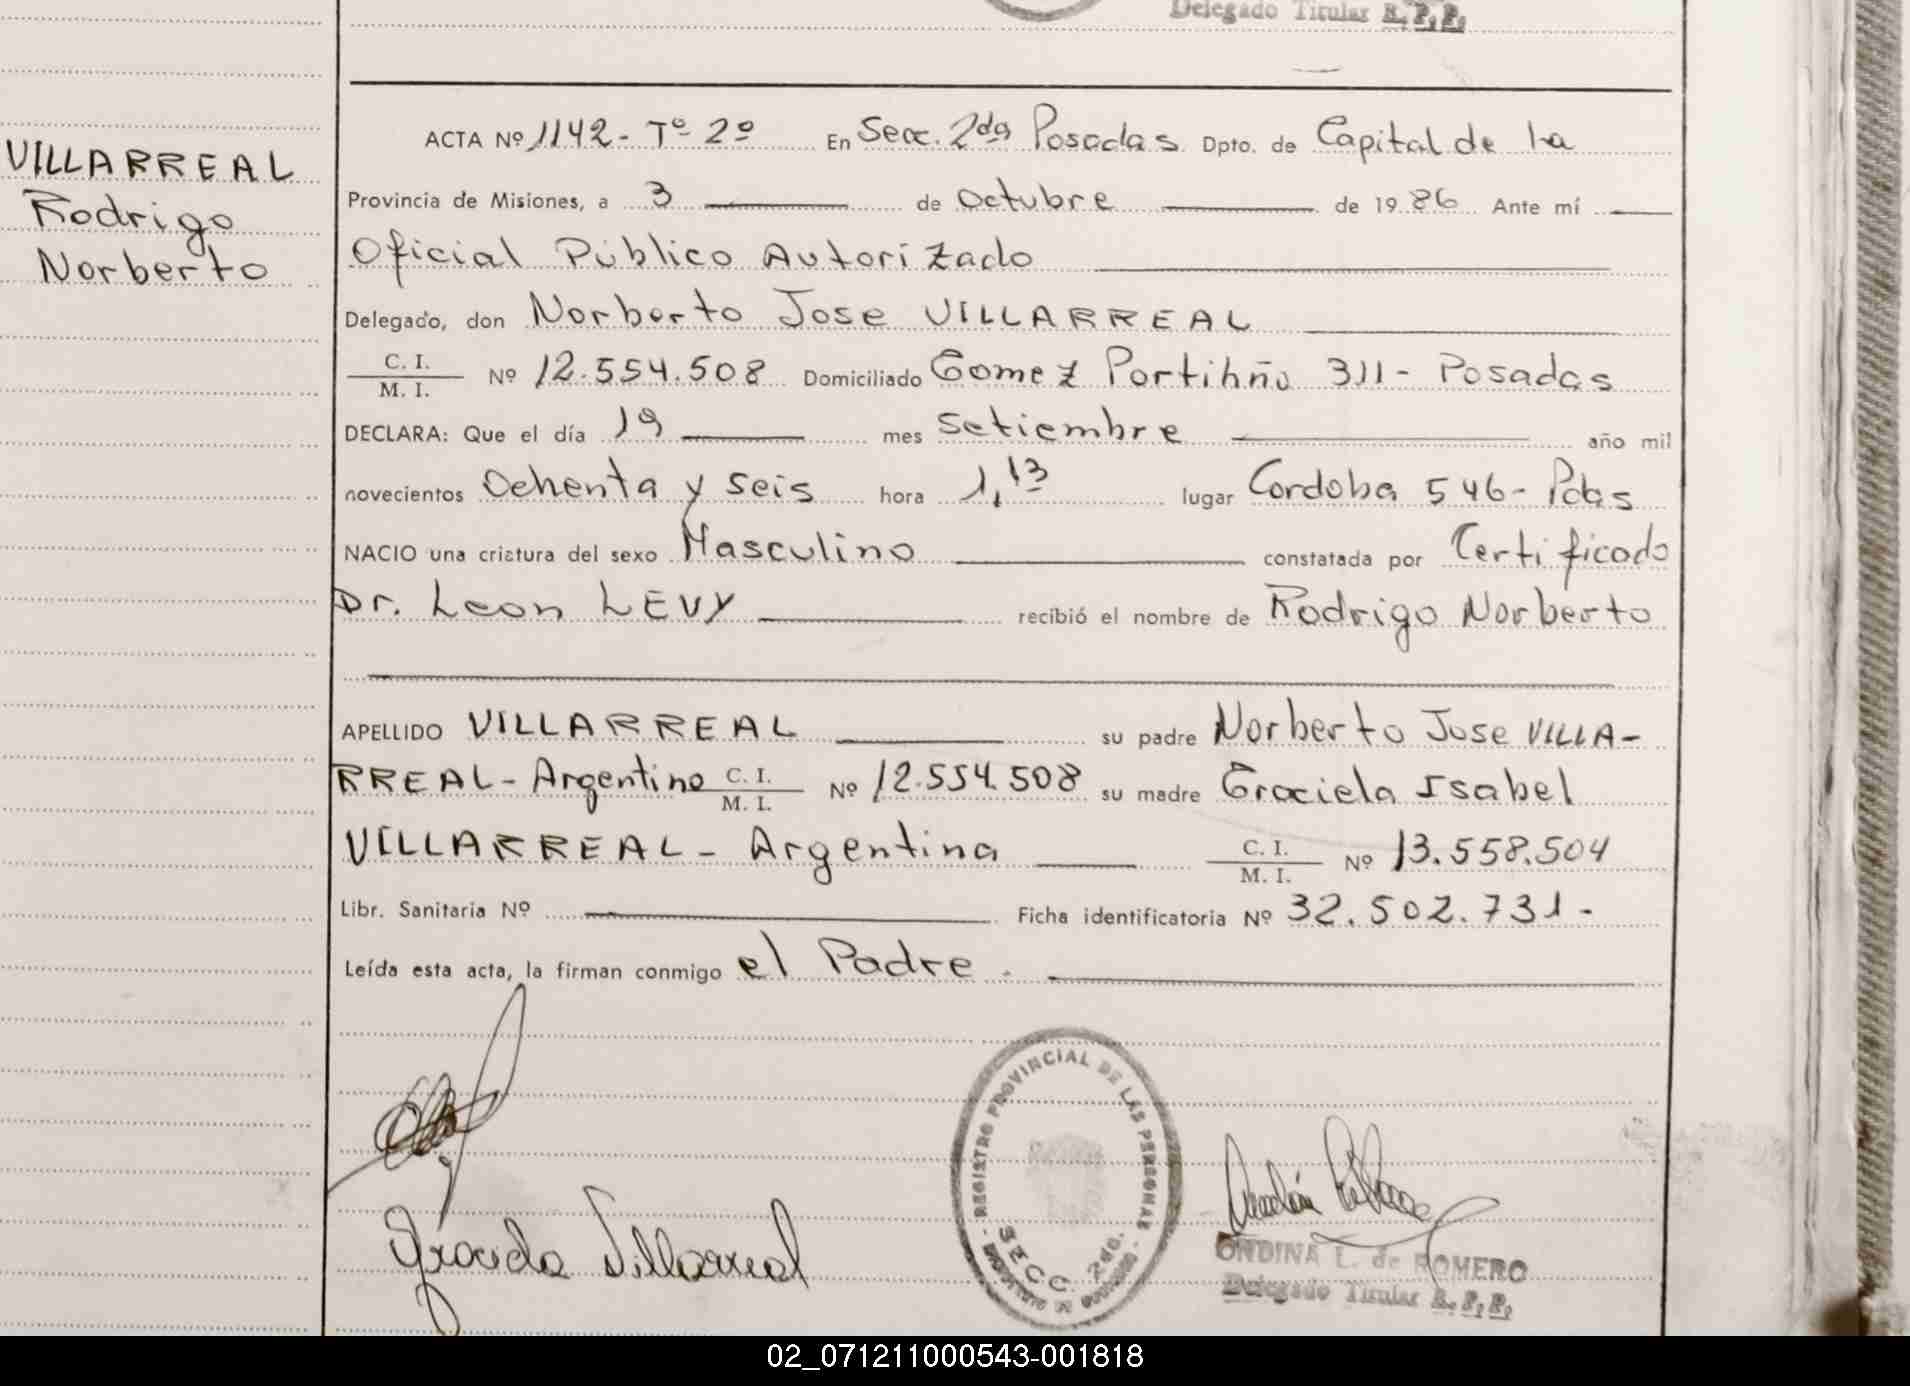 Delegado Titular R. P. P.
VILLARREAL
Rodrigo
Norberto
ACTA Nº 1142 - Tº 2º En Secc. 2da Posadas Dpto. de Capital de la
Provincia de Misiones, a 3 de Octubre de 1986 Ante mí
Oficial Público Autorizado
Delegado, don Norberto Jose VILLARREAL
C. I.
M. I. Nº 12.554.508 Domiciliado Gomez Portihño 311 - Posadas
DECLARA: Que el día 19 mes Setiembre año mil
novecientos Ochenta y seis hora 1,13 lugar Cordoba 546 - Pdas
NACIO una criatura del sexo Masculino constatada por Certificado
Dr. Leon LEVY recibió el nombre de Rodrigo Norberto
APELLIDO VILLARREAL su padre Norberto Jose VILLA-
RREAL - Argentino C. I. M. I. Nº 12.554.508 su madre Graciela Isabel
VILLARREAL - Argentina C. I. M. I. Nº 13.558.504
Libr. Sanitaria Nº Ficha identificatoria Nº 32.502.731 -
Leída esta acta, la firman conmigo el Padre.
Graciela Villarreal
REGISTRO PROVINCIAL DE LAS PERSONAS
SECC. 2da.
ONDINA L. de ROMERO
Delegado Titular R. P. P.
02_071211000543-001818